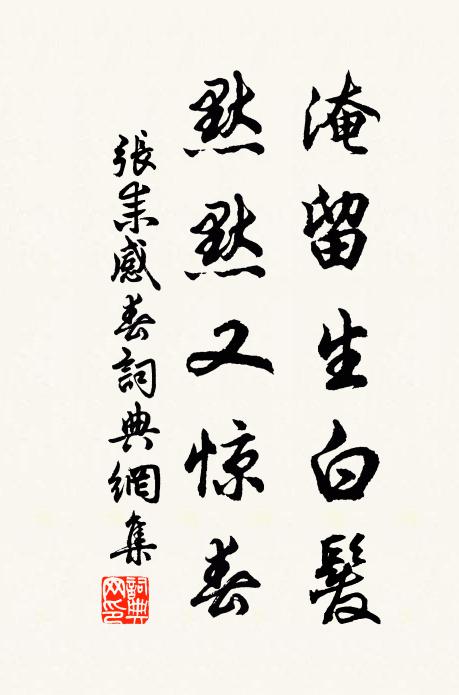 淹留生白髮
默默又惊春
張耒感春詞典網集
詞典網印